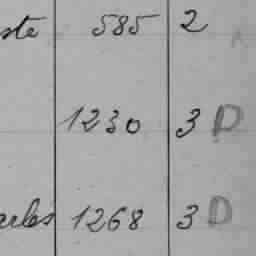 ste 585 2
1230 3 D
arles 1268 3 D